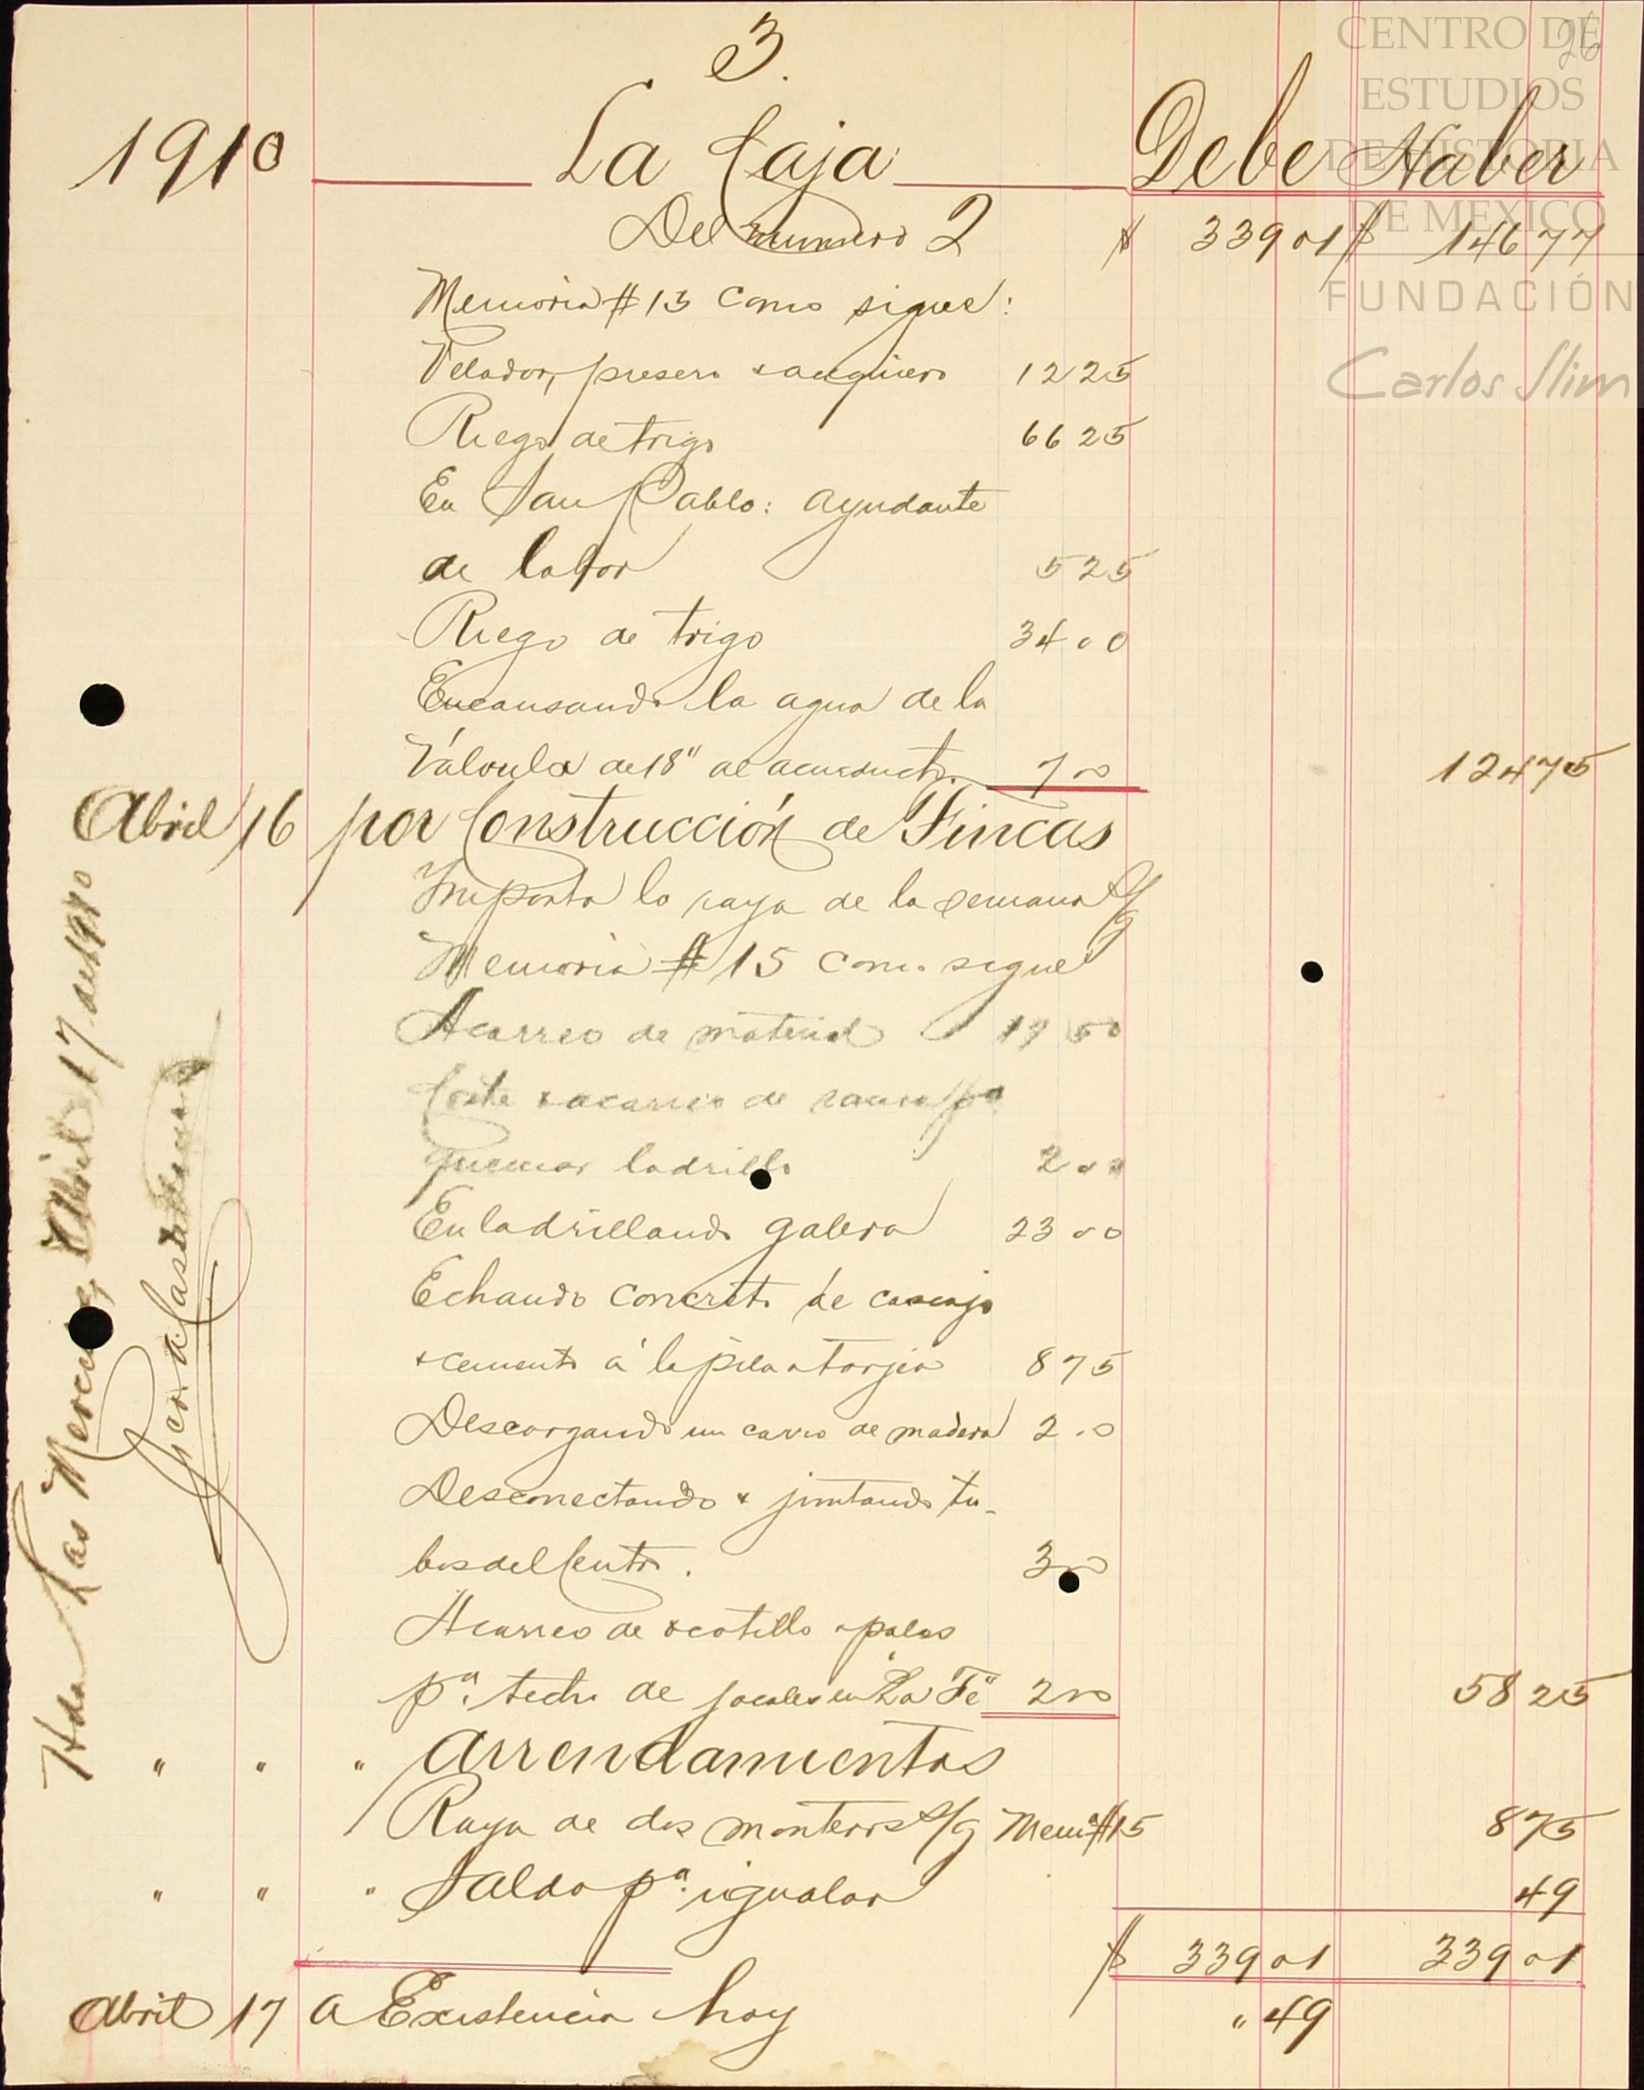 3.
26
CENTRO DE
ESTUDIOS
DE HISTORIA
DE MEXICO
FUNDACIÓN
Carlos Slim
1910 La Caja Debe Haber
Del numero 2 $ 339 01 $ 146 77
Memoria # 13 como sigue:
Velador, presero & acequiero 12 25
Riego de trigo 66 25
En San Pablo: ayudante
de labor 5 25
Riego de trigo 34 00
Encausando la agua de la
Válvula de 18" al acueducto. 7 00 124 75
Abril 16 por Construcción de Fincas
Importa la raya de la semana s/g
Memoria # 15 como sigue
Acarreo de material 17 50
Corte & acarreo de rama pa
quemar ladrillo 2 00
Enladrillando galera 23 00
Echando concreto de cascajo
& cemento á la pila atarjea 8 75
Descargando un carro de madera 2 00
Desconectando & juntando tu-
bos del Centro. 3 00
Acarreo de ocotillo & palos
pa. techo de jacales en "La Fé" 2 00 58 25
" " " Arrendamientos
Raya de dos monteros s/g Mema #15 8 75
" " " Saldo pa. igualar 49
$ 339 01 339 01
Abril 17 a Existencia hoy " 49
Hda Las Mercedes, Abril 17 de 1910